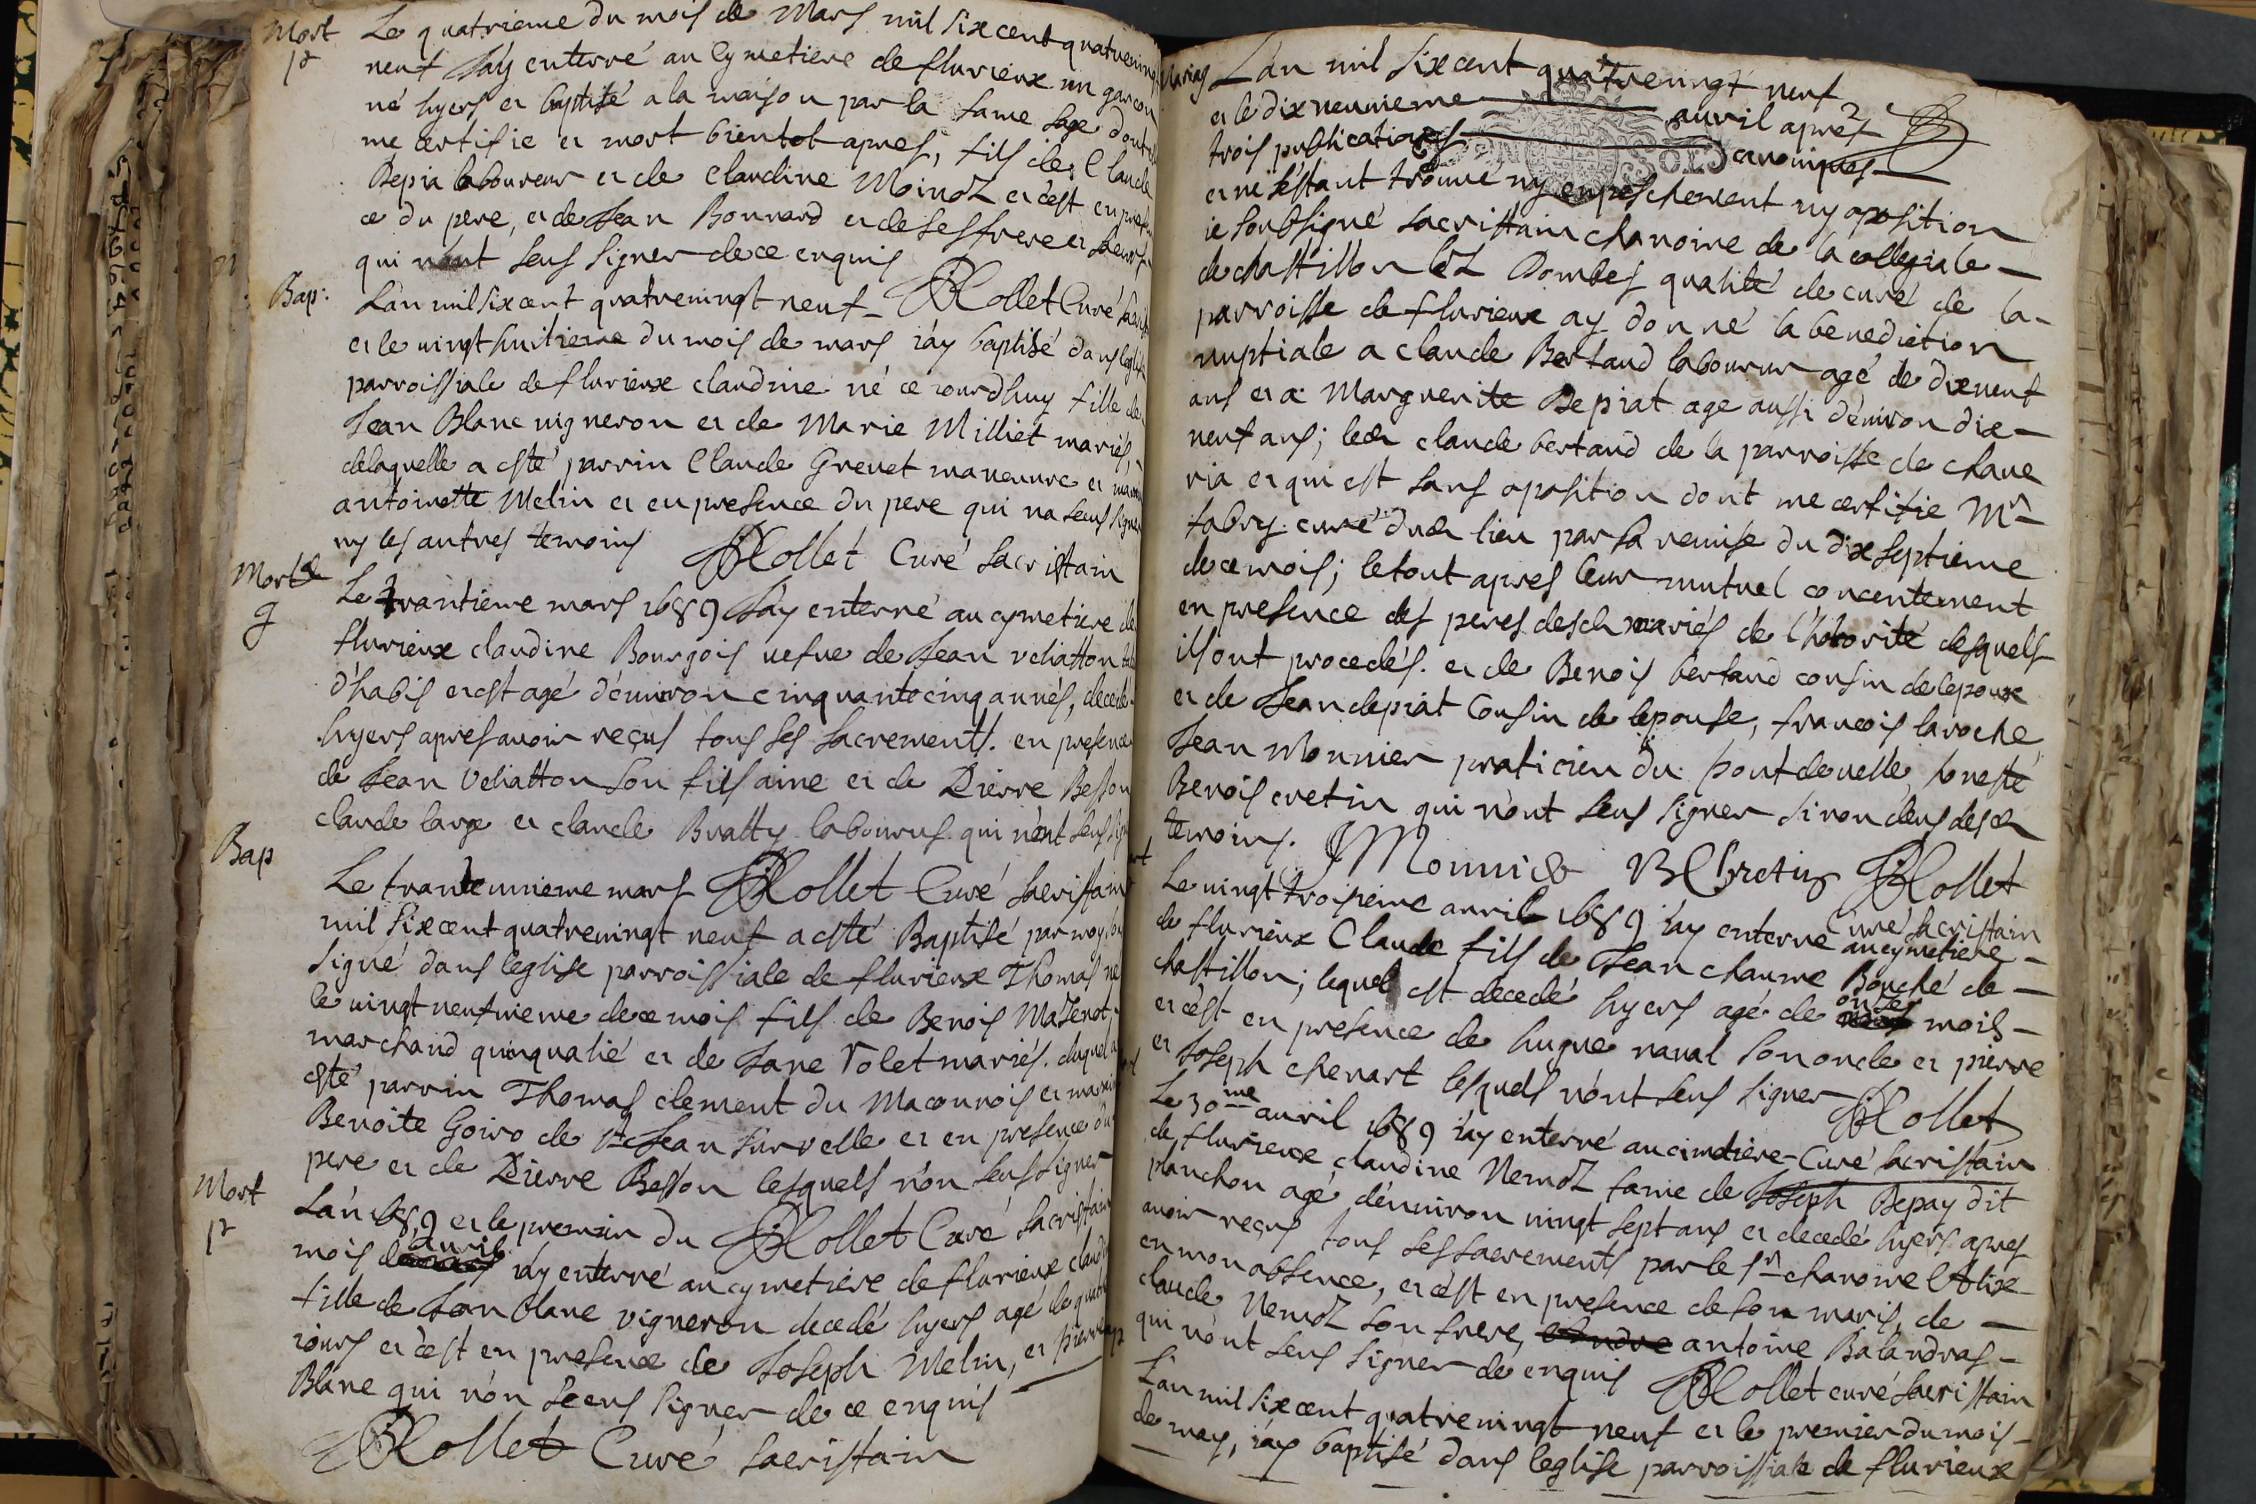 Mort
Le quatrieme du mois de Mars mil six cent quatrevingt
neuf J'ay enterré au Cymetiere de flurieux un garcon
né hyers et baptisé a la maison par la fame sage dont
me certifie et mort bientot apres, fils de Claude
Depia laboureur et de Claudine Moindz et c'est en presen
ce du pere, et de Jean Bonnard et de ses frere et
qui n'ont seus signer de ce enquis
Rollet Curé
Bap:
L'an mil six cent quatrevingt neuf
et le vingt huitieme du mois de mars i'ay baptisé dans leglise
parroissiale de flurieux claudine né ce iourdhuy fille de
Jean Blanc vigneron et de Marie Milliet mariés,
delaquelle a esté parrin Claude Grevet maneuvre et
antoinette Melin et en presence du pere qui na seus signer
ny les autres temoins Rollet Curé sacristain
Mort
g
Le trantieme mars 1689 J'ay enterré au cymetiere de
flurieux claudine Bourgois vefve de Jean veliatton
d'habis et est agé d'environ cinquante cinq annés, decedé
hyers apres avoir reçus tous ses sacrements. en presence
de Jean Veliatton son fils aine et de Pierre Besson
claude large et claude Bratty laboureus qui n'ont seus
Bap
Le trante unieme mars Rollet Curé sacristain
mil six cent quatrevingt neuf a esté Baptisé par moy
signé dans leglise parroissiale de flurieux Thomas né
le vingt neufvieme de ce mois fils de Benois Mazenot,
marchand quinqualié et de Jane Volet mariés. duquel a
esté parrin Thomas clement du Maconnois et
Benoite Goiro de St Jean survelle et en presence du
pere et de Pierre Besson lesquels n'on seus signer
Mort
L'an 1689 et le premier du Rollet Curé sacristain
mois d'avril i'ay enterré au cymetiere de flurieux
fille de Jean blanc vigneron decedé hyers agé de quatre
iours et c'est en presence de Joseph Melin, et pierre
Blanc qui n'on seeus signer de ce enquis
Rollet Curé sacristain
Mariag
L'an mil six cent quatrevingt neuf
et le dix neuvieme avril apres
trois publications canoniques
et ne s'estant trouvé ny enpeschement ny oposition
ie soubsigné sacristain chanoine de la collegiale
de chastillon lez Dombes qualité de curé de la
parroisse de flurieux ay donné la benediction
nuptiale a claude Bertaud laboureur agé de dix neuf
ans et a Marguerite Depiat age aussi d'environ dix
neuf ans; led claude bertaud de la parroisse de chave
ria et qui est sans oposition dont me certifie Mr
fabry curé dud lieu par sa remise du dix septieme
de ce mois; le tout apres leur mutuel concentement
en presence des peres desd mariés de l'hotorité desquels
ils ont procedés. et de Benois bertaud cousin de lepoux
et de Jean depiat Cousin de lepouse, francois laroche,
Jean Monnier praticien du pontdevelle, honeste
Benois cretin qui n'ont seus signer sinon deus desd
temoins. JMonnier B Chretin Rollet
Curé sacristain
Le vingt troisieme avril 1689 i'ay enterré au cymetiere
de flurieux Claude fils de Jean chaume Bouché de
chastillon; lequel est decedé hyers agé de onse mois
et c'est en presence de hugue naval son oncle et pierre
et Joseph chenart lesquels n'ont seus signer Rollet
Curé sacristain
Le 30me avril 1689 i'ay enterré au cimetiere
de flurieux claudine Nemoz fame de Joseph Depay dit
planchon agé d'environ vingt sept ans et decedé hyers apres
avoir reçus tous ses sacrements par le sr chanoine
en mon absence, et c'est en presence de son maris, de
claude Nemoz son frere, antoine Balandras
qui n'ont seus signer de enquis Rollet curé sacristain
L'an mil six cent quatrevingt neuf et le premier du mois
de may, i'ay baptisé dans leglise parroissiale de flurieux